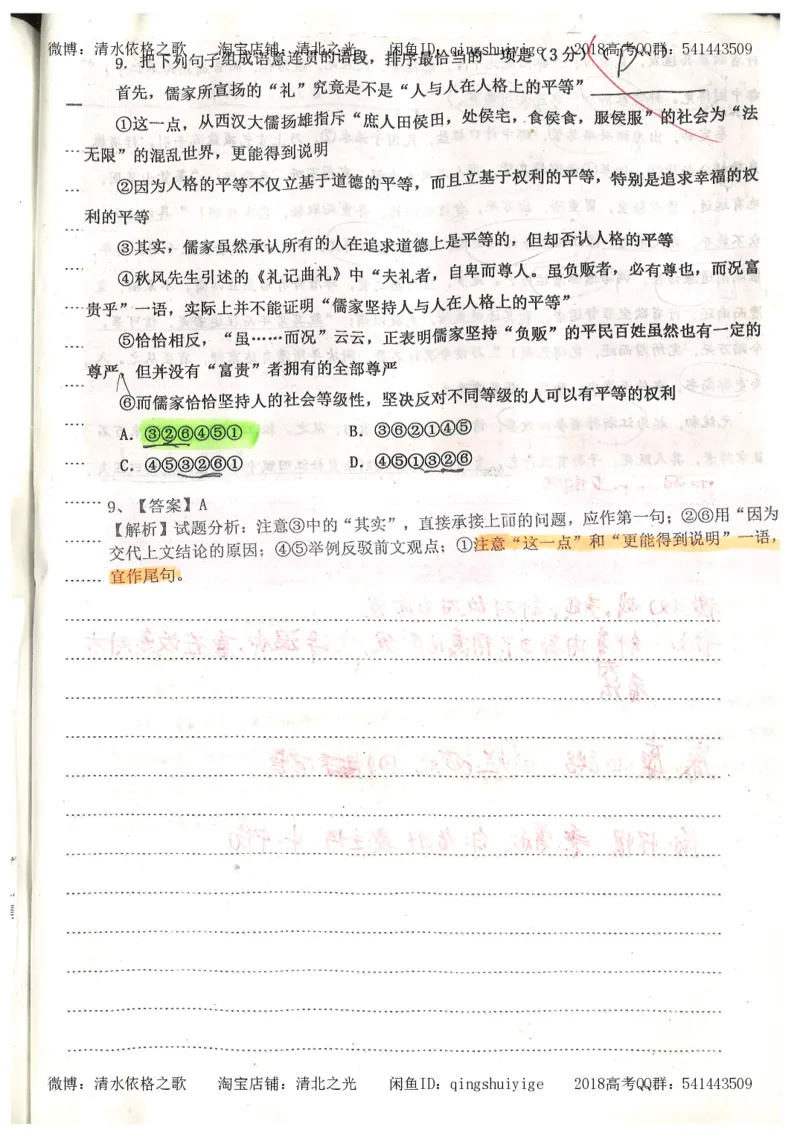 微博：清水依格之歌 淘宝店铺：清北之光 闲鱼ID：qingshuiyige 2018高考QQ群：541443509
9. 把下列句子组成语意连贯的语段，排序最恰当的一项是（3分）（D）
首先，儒家所宣扬的“礼”究竟是不是“人与人在人格上的平等”
①这一点，从西汉大儒扬雄指斥“庶人田侯田，处侯宅，食侯食，服侯服”的社会为“法
无限”的混乱世界，更能得到说明
②因为人格的平等不仅立基于道德的平等，而且立基于权利的平等，特别是追求幸福的权
利的平等
③其实，儒家虽然承认所有的人在追求道德上是平等的，但却否认人格的平等
④秋风先生引述的《礼记曲礼》中“夫礼者，自卑而尊人。虽负贩者，必有尊也，而况富
贵乎”一语，实际上并不能证明“儒家坚持人与人在人格上的平等”
⑤恰恰相反，“虽……而况”云云，正表明儒家坚持“负贩”的平民百姓虽然也有一定的
尊严，但并没有“富贵”者拥有的全部尊严
⑥而儒家恰恰坚持人的社会等级性，坚决反对不同等级的人可以有平等的权利
A. ③②⑥④⑤① B. ③⑥②①④⑤
C. ④⑤③②⑥① D. ④⑤①③②⑥
9、【答案】A
【解析】试题分析：注意③中的“其实”，直接承接上面的问题，应作第一句；②⑥用“因为
交代上文结论的原因；④⑤举例反驳前文观点；①注意“这一点”和“更能得到说明”一语，
宜作尾句。
微博：清水依格之歌 淘宝店铺：清北之光 闲鱼ID：qingshuiyige 2018高考QQ群：541443509